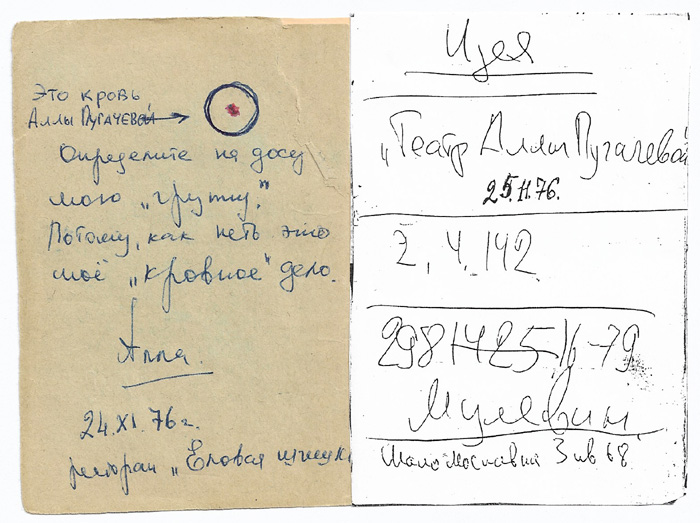 Это кровь
Аллы Пугачевой
Определите на досу
мою „группу."
Потому, как петь это
моё „кровное" дело.
Алла.
24.XI.76 г.
ресторан „Еловая шишка
Идея
„Театр Аллы Пугачевой
25.11.76.
2. 4. 142
Мулявин
3 кв 68